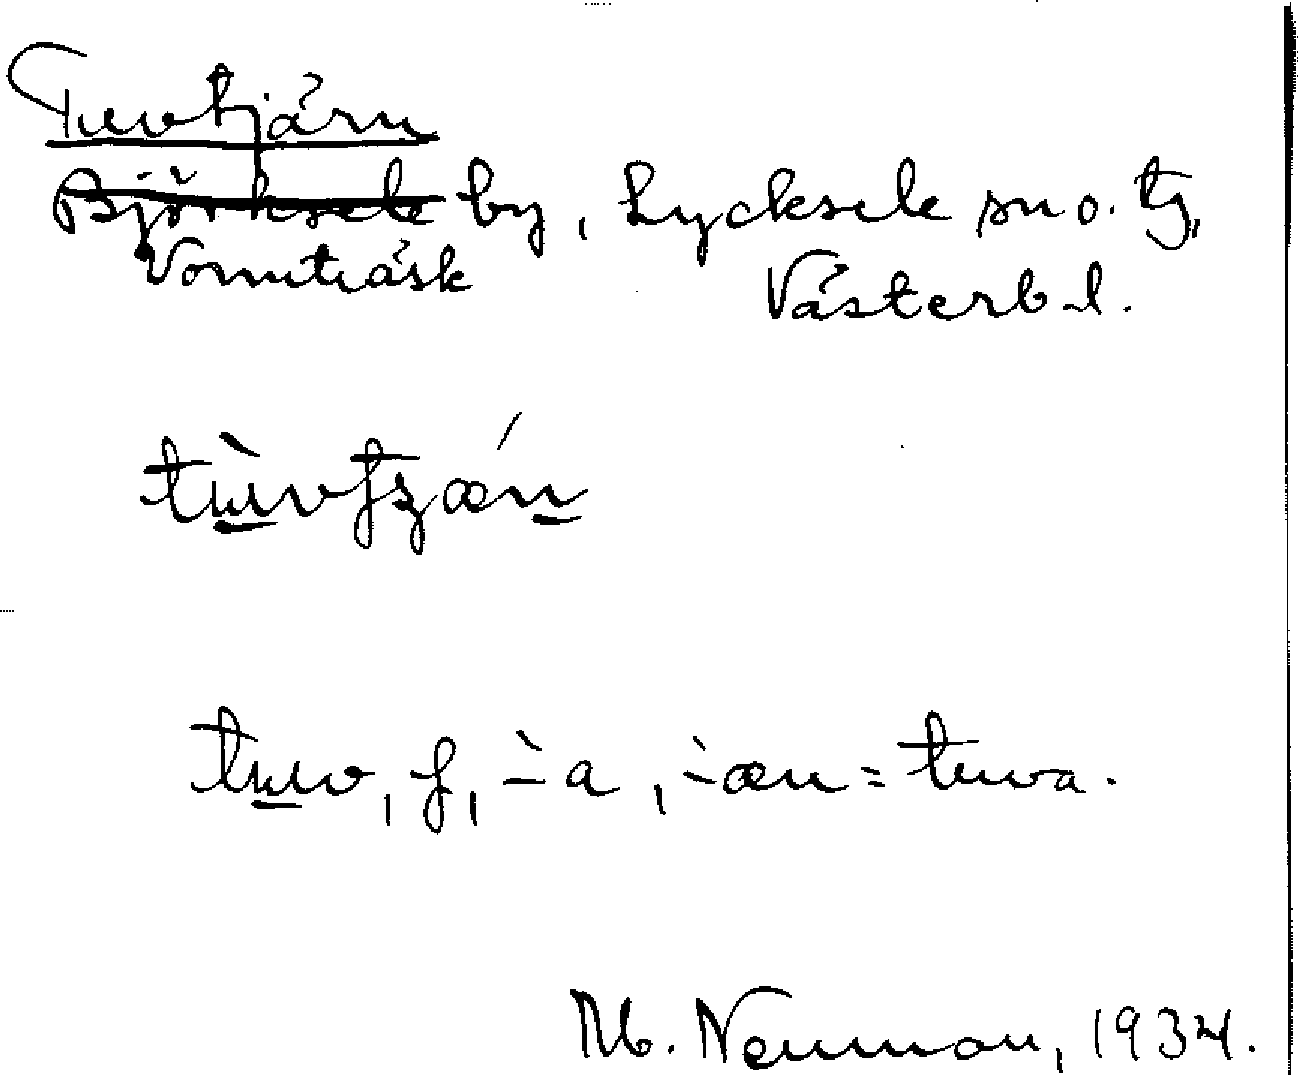 Tuvtjärn
Björksele by, Lycksele sn o. tg,
Vormträsk
Västerb. l.
tùvtʒǽn
tuv, f, -̀a, -̀æn = tuva.
M. Neuman, 1934.